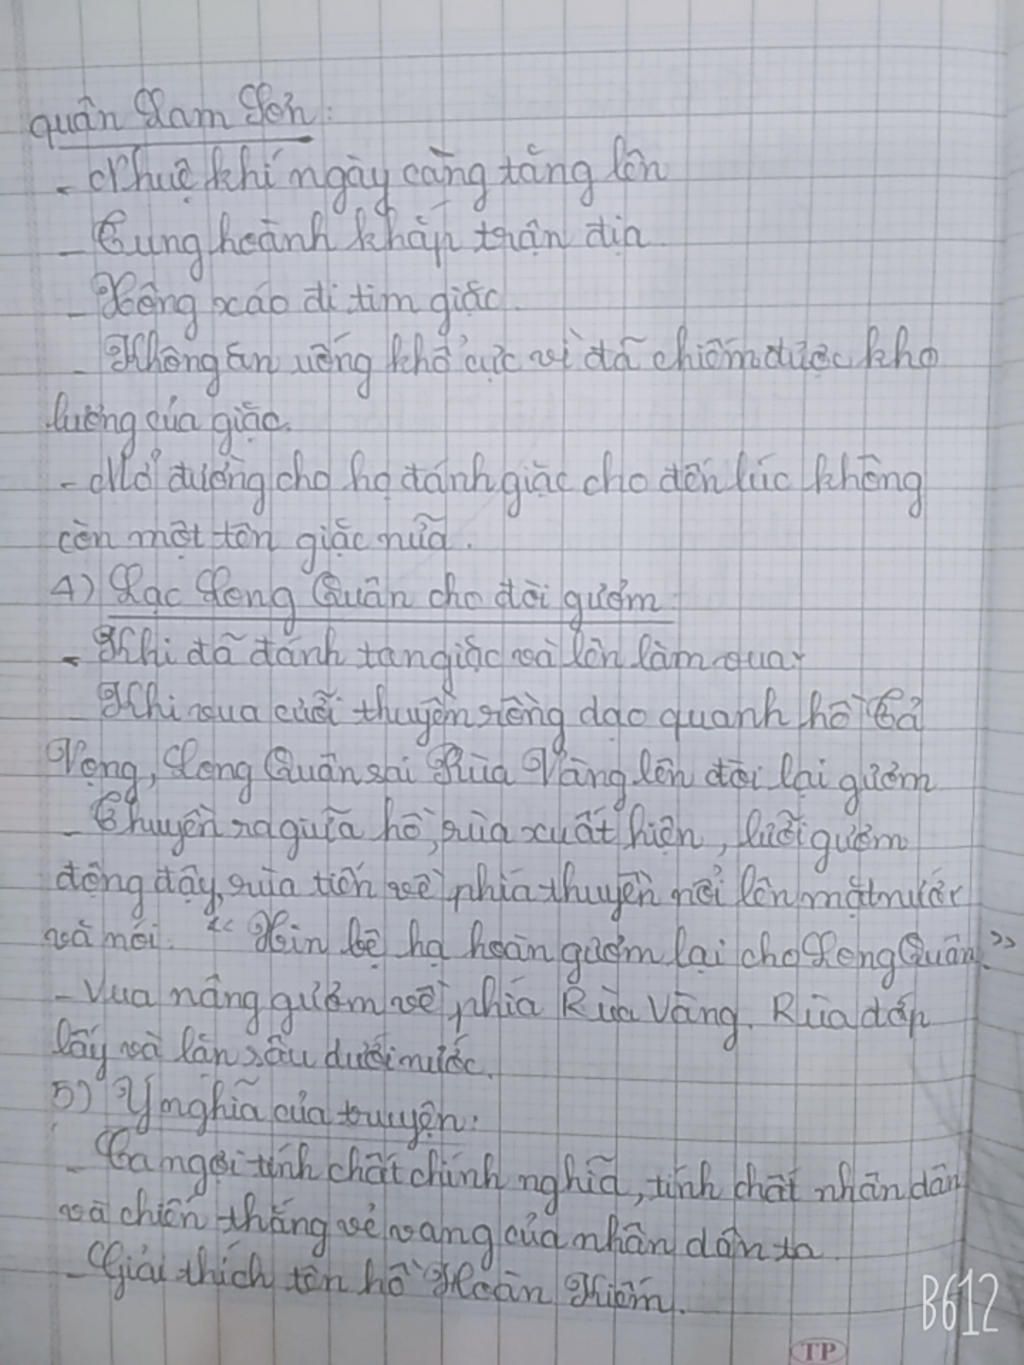 quân Lam Sơn:
- Nhuệ khí ngày càng tăng lên
- Tung hoành khắp trận địa
- Xông xáo đi tìm giặc.
- Không ăn uống khổ cực vì đã chiếm được kho
lương của giặc.
- Mở đường cho họ đánh giặc cho đến lúc không
còn một tên giặc nữa.
4) Lạc Long Quân cho đòi gươm
- Khi đã đánh tan giặc và lên làm vua.
- Khi vua cưỡi thuyền rồng dạo quanh hồ Tả
Vọng, Long Quân sai Rùa Vàng lên đòi lại gươm
- Thuyền ra giữa hồ, rùa xuất hiện, lưỡi gươm
động đậy, rùa tiến về phía thuyền nổi lên mặt nước
và nói. "Xin bệ hạ hoàn gươm lại cho Long Quân."
- Vua nâng gươm về phía Rùa Vàng. Rùa đớp
lấy và lặn sâu dưới nước.
5) Ý nghĩa của truyện:
- Ca ngợi tính chất chính nghĩa, tính chất nhân dân
và chiến thắng vẻ vang của nhân dân ta
- Giải thích tên hồ Hoàn Kiếm.
B612
TP